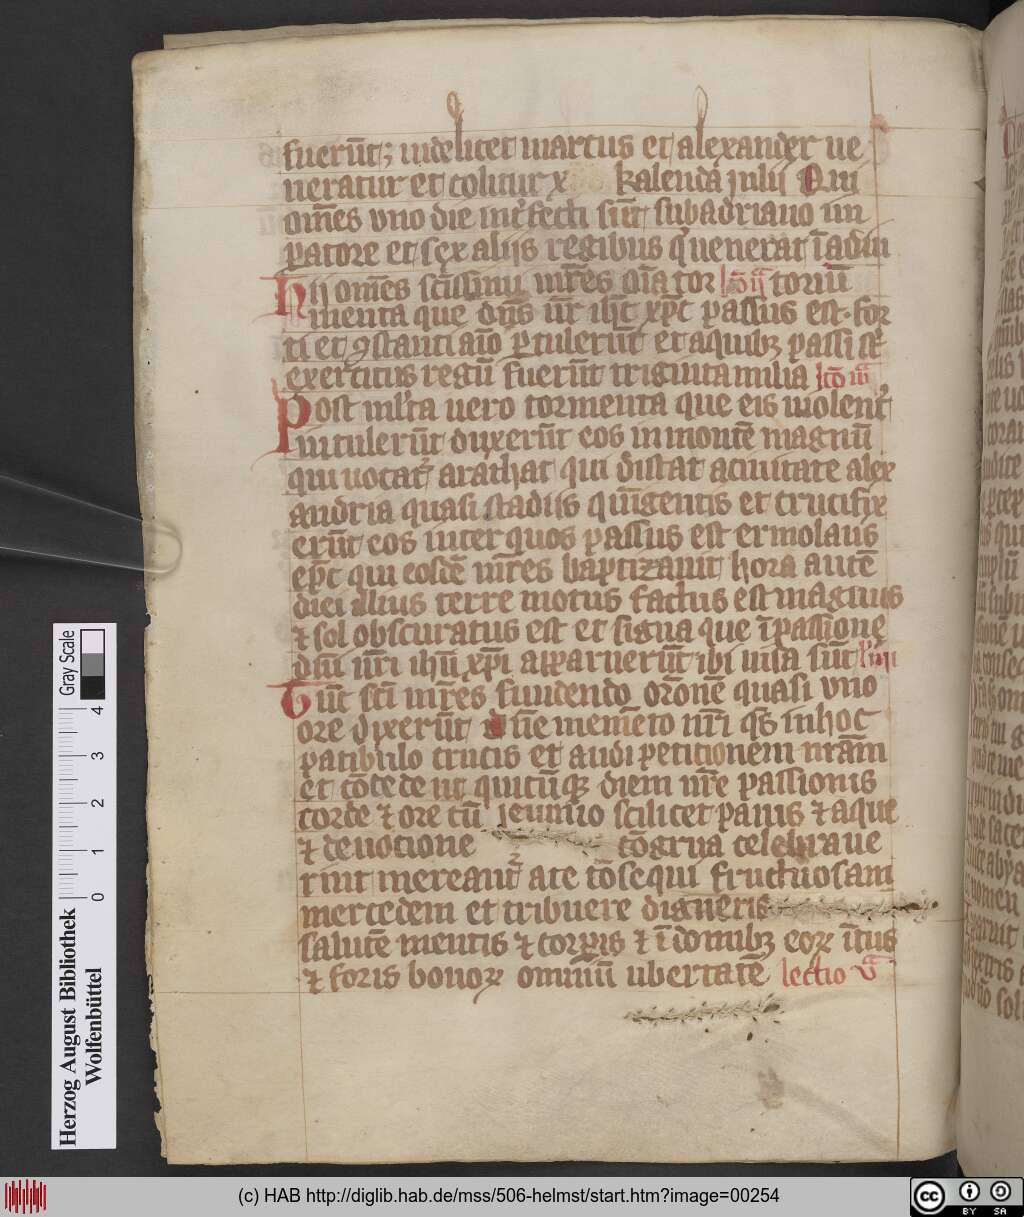 fuerūt; videlicet marcus et alexander ve
neratur et colitur x kalenda julij Qui
om̄es vno die int̓fecti sūt sub adriano im
peratore et sex alijs regibus q̓ uenerat ī adiu
Hij om̄es sc̄issimi mr̄es oīa tor lc̄o ijᵃ toriū
menta que dn̄s nr̄ ih̄c xp̄c passus est. for
ti et ꝯstanti aīo ꝑtulerūt et a quibꝫ passi st̄
exercitus regū fuerūt triginta milia lc̄o iijᵃ
Post ml̓ta vero tormenta que eis violent̓
intulerūt duxerūt eos in montē magnū
qui uocat᷑ arathat qui distat a ciuitate alex
andria quasi stadijs quīgentis et crucifix
erūt eos inter quos passus est ermolaus
ep̄c qui eosdē mr̄es baptizauit hora autē
diei illius terre motus factus est magnus
⁊ sol obscuratus est et signa que ī passione
dn̄i nr̄i ih̄u xp̄i apparuerūt ibi uisa sūt l̓ iiij
Tūc sc̄i mr̄es fundendo orōnē quasi vno
ore dixerūt dn̄e memēto nr̄i qs̄ in hoc
patibulo crucis et audi petitionem nr̄am
et cōcede ut quicūqꝫ diem nr̄e passionis
corde ⁊ ore cū jeiunio scilicet panis ⁊ aque
⁊ deuocione cōgrua celebraue
rint mereant᷑ a te cōsequi fructuosam
mercedem et tribuere digneris
salutē mentis ⁊ corꝑis ⁊ ī domibꝫ eoꝝ ītus
⁊ foris bonoꝝ omniū ubertatē lectio vᵃ
Gray Scale
4 3 2 1 0
Herzog August Bibliothek
Wolfenbüttel
(c) HAB http://diglib.hab.de/mss/506-helmst/start.htm?image=00254
cc BY SA